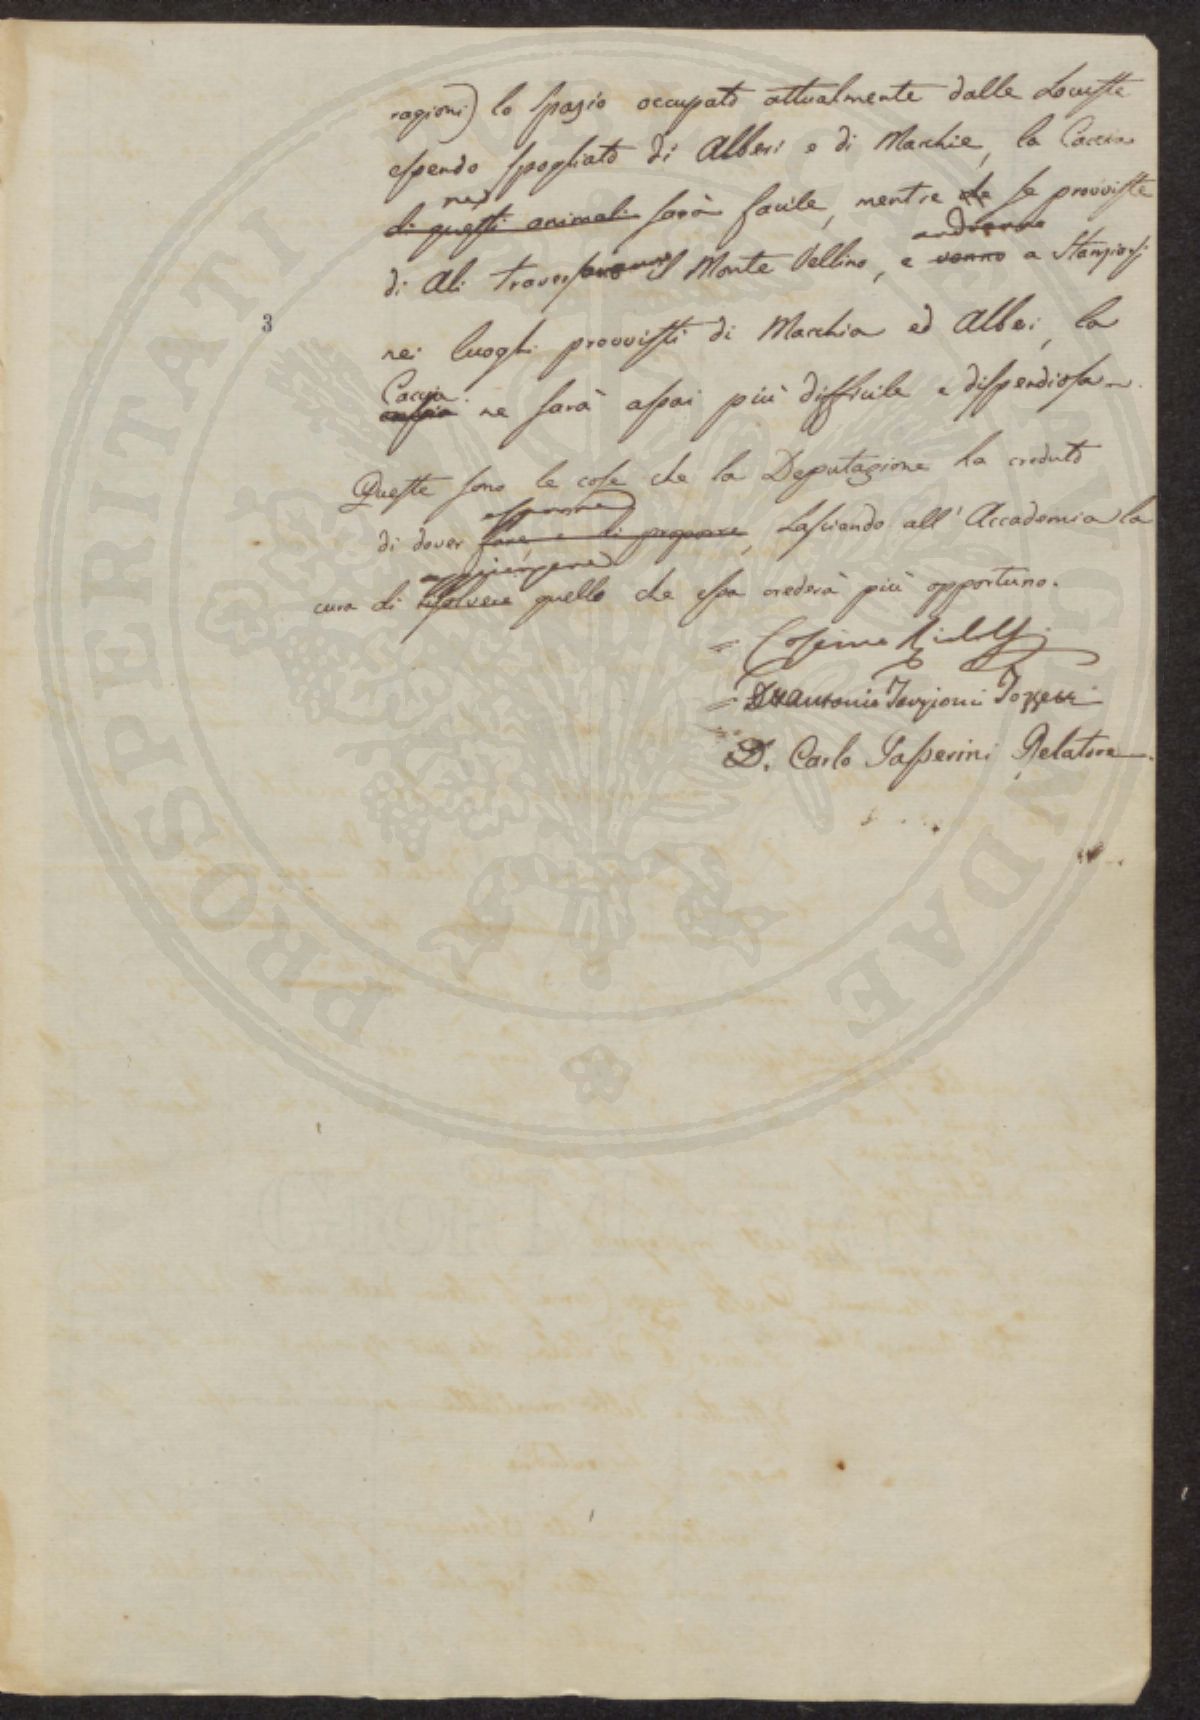 ragioni) lo spazio occupato attualmente dalle Locuste
essendo spogliato di Alberi e di Macchie, la Caccia
ne
di questi animali sarà facile, mentre se provviste
anderanno
di Ali traverseranno il Monte Vellino, e vanno a Stanziarsi
3
nei luoghi provvisti di Macchia ed Alberi, la
Caccia
ne sarà assai più difficile e dispendiosa.
Queste sono le cose che la Deputazione ha creduto
esporre
di dover fare, e di proporre, Lasciando all'Accademia la
cura di risolvere quello che essa crederà più opportuno.
= Cosimo Ridolfi
= D. Antonio Targioni Tozzetti
D. Carlo Passerini Relatore
PROSPERITATI PUBLICAE AUGENDAE